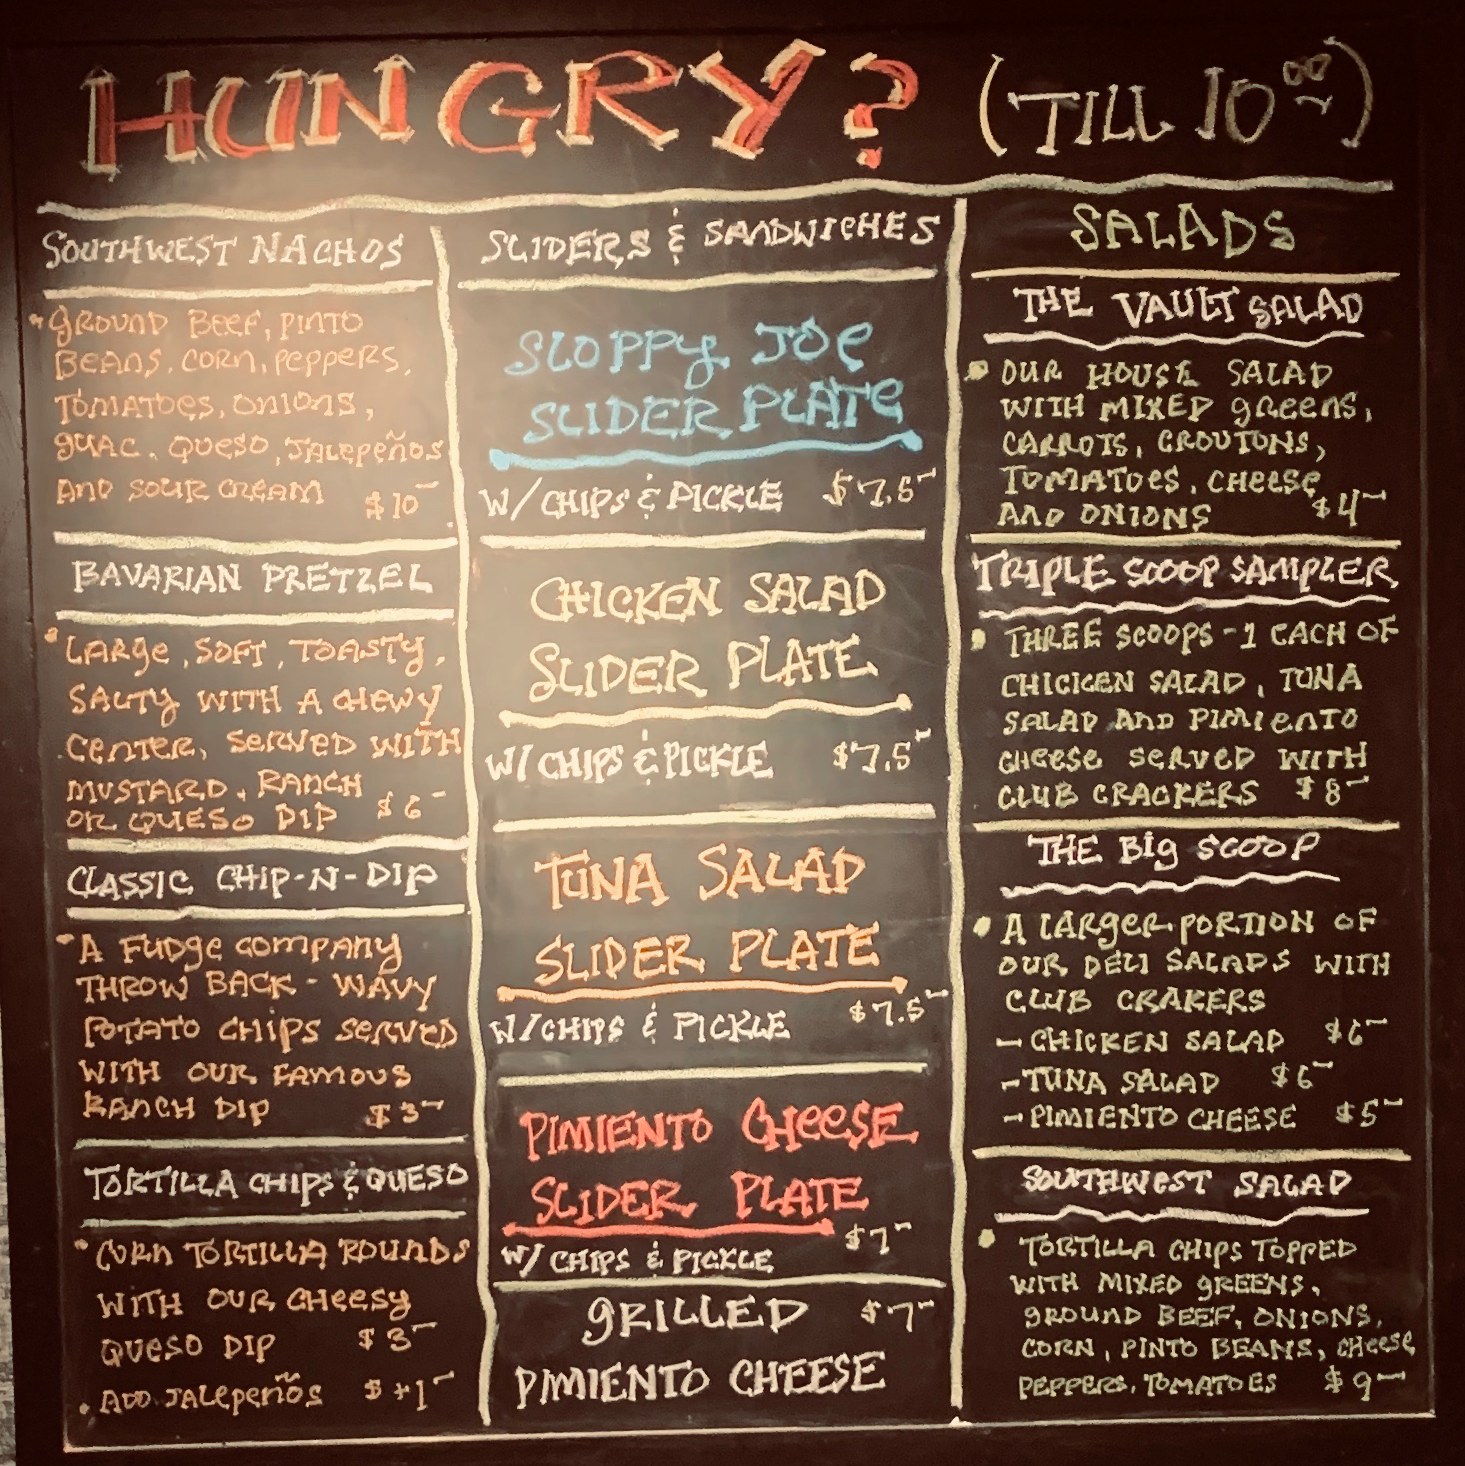 HUNGRY? (TILL 10⁰⁰)
SOUTHWEST NACHOS
GROUND BEEF, PINTO
BEANS, CORN, PEPPERS,
TOMATOES, ONIONS,
GUAC, QUESO, JALEPEÑOS
AND SOUR CREAM $10
BAVARIAN PRETZEL
LARGE, SOFT, TOASTY,
SALTY WITH A CHEWY
CENTER, SERVED WITH
MUSTARD, RANCH
OR QUESO DIP $6
CLASSIC CHIP-N-DIP
A FUDGE COMPANY
THROW BACK - WAVY
POTATO CHIPS SERVED
WITH OUR FAMOUS
RANCH DIP $3
TORTILLA CHIPS & QUESO
CORN TORTILLA ROUNDS
WITH OUR CHEESY
QUESO DIP $3
ADD JALEPEÑOS $+1
SLIDERS & SANDWICHES
SLOPPY JOE
SLIDER PLATE
W/ CHIPS & PICKLE $7.5
CHICKEN SALAD
SLIDER PLATE
W/ CHIPS & PICKLE $7.5
TUNA SALAD
SLIDER PLATE
W/ CHIPS & PICKLE $7.5
PIMIENTO CHEESE
SLIDER PLATE
W/ CHIPS & PICKLE $7
GRILLED $7
PIMIENTO CHEESE
SALADS
THE VAULT SALAD
OUR HOUSE SALAD
WITH MIXED GREENS,
CARROTS, CROUTONS,
TOMATOES, CHEESE
AND ONIONS $4
TRIPLE SCOOP SAMPLER
THREE SCOOPS - 1 EACH OF
CHICKEN SALAD, TUNA
SALAD AND PIMIENTO
CHEESE SERVED WITH
CLUB CRACKERS $8
THE BIG SCOOP
A LARGER PORTION OF
OUR DELI SALADS WITH
CLUB CRAKERS
- CHICKEN SALAD $6
- TUNA SALAD $6
- PIMIENTO CHEESE $5
SOUTHWEST SALAD
TORTILLA CHIPS TOPPED
WITH MIXED GREENS,
GROUND BEEF, ONIONS,
CORN, PINTO BEANS, CHEESE
PEPPERS, TOMATOES $9